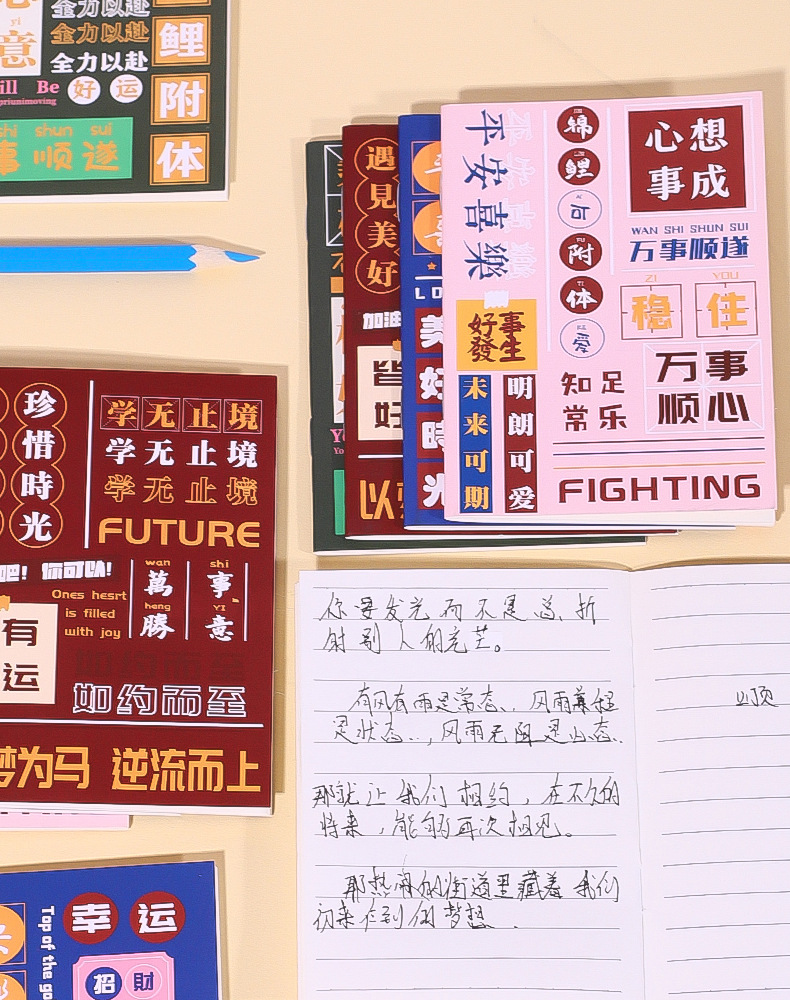 全力以赴
全力以赴
全力以赴
ill Be
好运
priunimoving
shi shun sui
事顺遂
鲤
附
体
意
yi
遇見美好
加油
皆
好
以
LO
美好時光
平安喜樂
平安喜樂
锦鲤
附体
爱
心想
事成
WAN SHI SHUN SUI
万事顺遂
ZI YOU
稳住
好事
發生
未来可期
明朗可爱
知足
常乐
万事
顺心
FIGHTING
珍惜時光
学无止境
学无止境
学无止境
FUTURE
吧！你可以！
Ones hesrt
is filled
with joy
wan
萬
heng
勝
shi
事
YI
意
有
运
如约而至
如约而至
梦为马 逆流而上
幸运
Top of the go
招財
你要发光而不是总折
射别人的光芒。
有风有雨是常态，风雨兼程
是状态，风雨无阻是心态.
那就让我们相约，在不久的
将来，能够再次相见。
那热闹的街道里藏着我们
初来乍到的梦想.
以顶